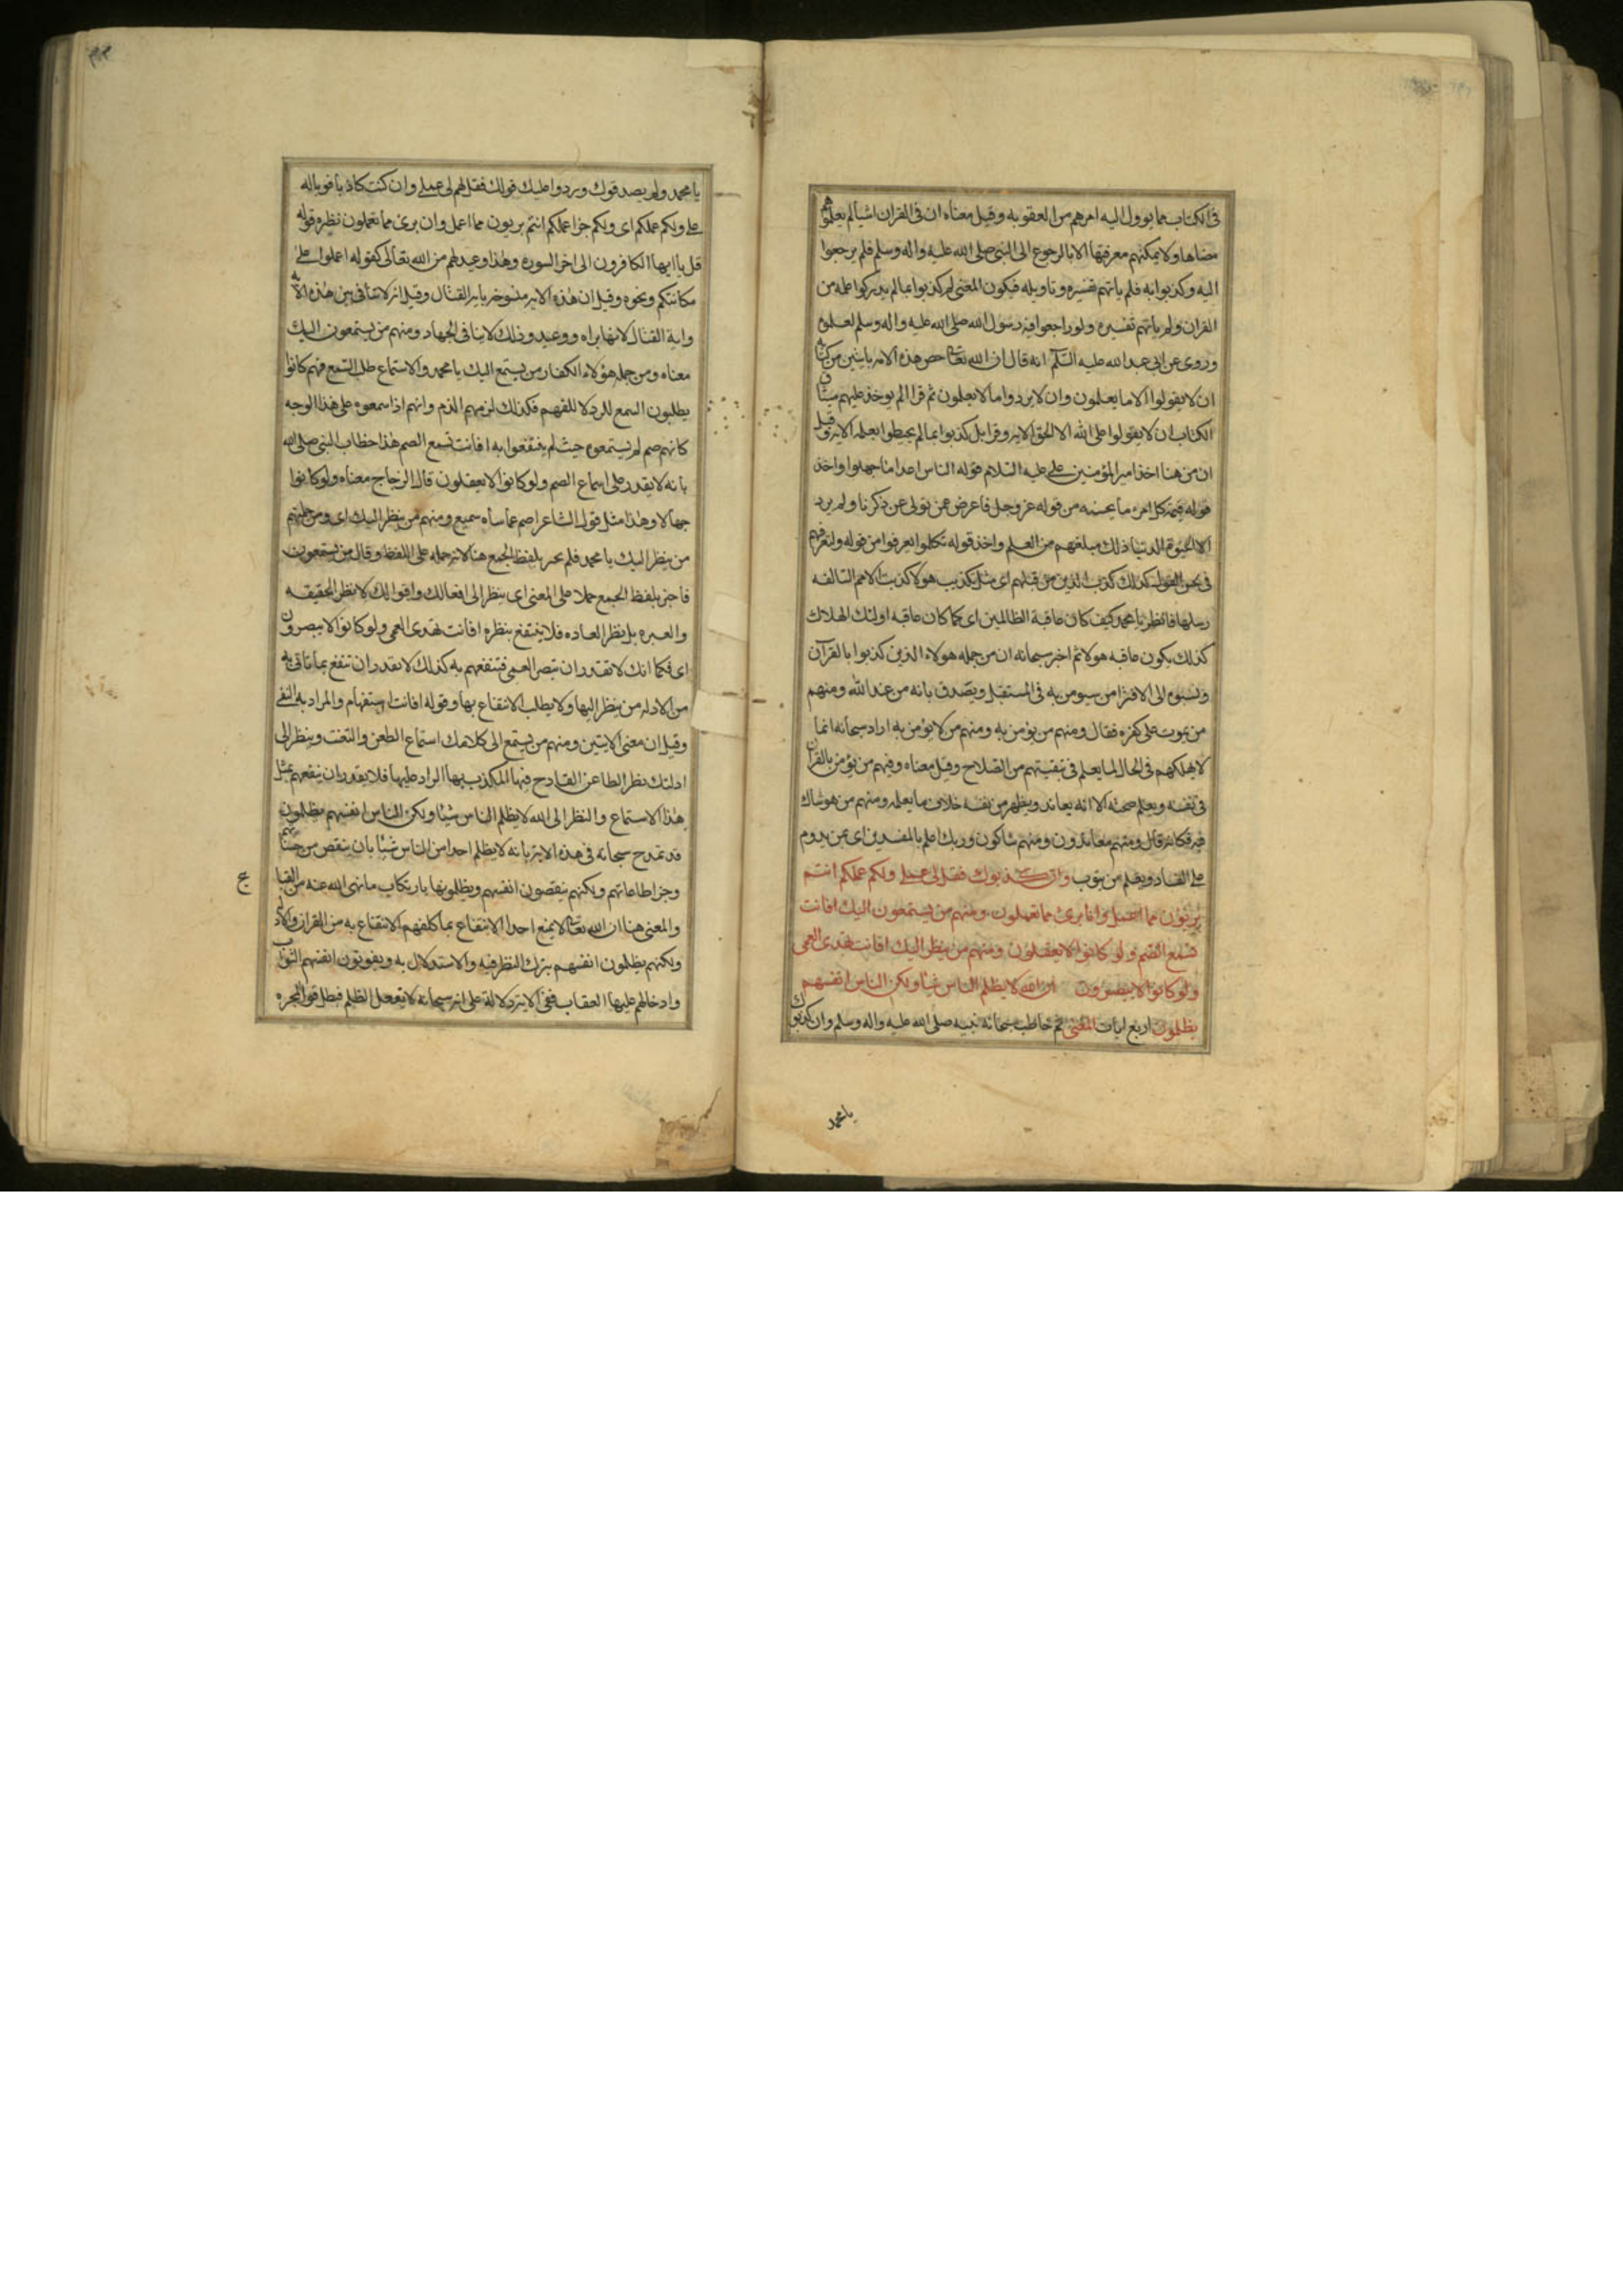 في الكتاب مما يوول اليه امرهم من العقوبه وقيل معناه ان في القران اشيا لم يعلموا هم
معناها ولا يمكنهم معرفتها الا بالرجوع الى النبي صلى الله عليه واله وسلم فلم يرجعوا
اليه وكذبوا به فلم ياتهم تفسيره وتاويله فيكون المعنى لم كذبوا بما لم يدركوا علمه من
القران ولم ياتهم تفسيره ولو راجعوا فيه رسول الله صلى الله عليه واله وسلم لعلموه
وروى عن ابي عبد الله عليه السلم انه قال ان الله تعالى خص هذه الامه بايتين من كتابه
ان لا يقولوا الا ما يعلمون وان لا يردوا ما لا يعلمون ثم قرا الم يوخذ عليهم ميثاق
الكتاب ان لا يقولوا على الله الا الحق الايه وقرا بل كذبوا بما لم يحيطوا بعلمه الايه وقيل
ان من هنا اخذ امير المؤمنين علي عليه السلام قوله الناس اعدا ما جهلوا واخذ
قوله قيمة كل امرء ما يحسنه من قوله عز وجل فاعرض عمن تولى عن ذكرنا ولم يرد
الا الحيوة الدنيا ذلك مبلغهم من العلم واخذ قوله تكلموا تعرفوا من قوله ولتعرفنهم
في لحن القول كذلك كذب الذين من قبلهم اي مثل تكذيب هولا كذبت الامم السالفه
رسلها فانظر يا محمد كيف كان عاقبة الظالمين اي كما كان عاقبه اولئك الهلاك
كذلك يكون عاقبه هولا ثم اخبر سبحانه ان من جمله هولاء الذين كذبوا بالقرآن
ونسبوه الى الافترا من سيومن به في المستقبل ويصدق بانه من عند الله ومنهم
من يموت على كفره فقال ومنهم من يؤمن به ومنهم من لا يؤمن به اراد سبحانه انما
لا يهلكهم في الحال لما يعلم في تبقيتهم من الصلاح وقيل معناه ومنهم من يؤمن بالقران
في نفسه ويعلم صحته الا انه يعاند ويظهر من نفسه خلاف ما يعلمه ومنهم من هو شاك
فيه فكانه قال ومنهم معاندون ومنهم شاكون وربك اعلم بالمفسدين اي بمن يدوم
على الفساد ويعلم من يتوب وان كذبوك فقل لي عملي ولكم عملكم انتم
بريئون مما اعمل وانا برئ مما تعملون ومنهم من يستمعون اليك افانت
تسمع الصم ولو كانوا لا يعقلون ومنهم من ينظر اليك افانت تهدى العمى
ولو كانوا لا يبصرون ان الله لا يظلم الناس شيئا ولكن الناس انفسهم
يظلمون اربع ايات المعنى ثم خاطب سبحانه نبيه صلى الله عليه واله وسلم وان كذبوك
يا محمد
يا محمد ولم يصدقوك وردوا عليك قولك فقل لهم لي عملي وان كنت كاذبا فوباله
علي ولكم عملكم اي ولكم جزا عملكم انتم بريون مما اعمل وان برئ مما تعملون نظيره قوله
قل يا ايها الكافرون الى اخر السوره وهذا وعيد لهم من الله تعالى كقوله اعملوا على
مكانتكم ونحوه وقيل ان هذه الايه منسوخه بايه القتال وقيل انه لا تنافى بين هذه الايه
واية القتال لانها براه ووعيد وذلك لا ينافى الجهاد ومنهم من يستمعون اليك
معناه ومن جمله هؤلاء الكفار من يستمع اليك يا محمد والاستماع طلب السمع فهم كانوا
يطلبون السمع للرد لا للفهم فكذلك لزمهم الذم وانهم اذا سمعوه على هذا الوجه
كانهم صم لم يستمعوه حيث لم ينتفعوا به افانت تسمع الصم هذا خطاب النبي صلى الله
بانه لا يقدر على اسماع الصم ولو كانوا لا يعقلون قال الزجاج معناه ولو كانوا
جهالا وهذا مثل قول الشاعر اصم عما ساه سميع ومنهم من ينظر اليك اي ومن جملتهم
من ينظر اليك يا محمد فلم يخبر بلفظ الجمع هنا لانه حمله على اللفظ وقال من يستمعون
فاخبر بلفظ الجمع حملا على المعنى اي ينظر الى افعالك واقوالك لا نظر الحقيقه
والعبره بل نظر العاده فلا ينتفع بنظره افانت تهدى العمى ولو كانوا لا يبصرون
اي فكما انك لا تقتدر ان تبصر العمى فتنفعهم به كذلك لا تقدر ان تنفع بما تاتى به
من الادله من ينظر اليها ولا يطلب الانتفاع بها وقوله افانت استفهام والمراد به النفى
وقيل ان معنى الايتين ومنهم من يستمع الى كلامك استماع الطعن والتعنت وينظر الى
ادلتك نظر الطاعن القادح فيها المكذب بها الراد عليها فلا يقدر ان ينفعهم بمثل
هذا الاستماع والنظر الى الله لا يظلم الناس شيئا ولكن الناس انفسهم يظلمون
قد تمدح سبحانه في هذه الايه بانه لا يظلم احدا من الناس شيئا بان ينقص من حسناتهم
وجزا طاعاتهم ولكنهم ينقصون انفسهم ويظلمونها بارتكاب ما نهى الله عنه من القبا
ع
والمعنى هنا ان الله تعالى لا يمنع احدا الانتفاع بما كلفهم الانتفاع به من القران والادله
ولكنهم يظلمون انفسهم بترك النظر فيه والاستدلال به ويفوتون انفسهم الثواب
وادخالهم عليها العقاب ففي الايه دلالة على انه سبحانه لا يفعل الظلم فبطل قول المجبره